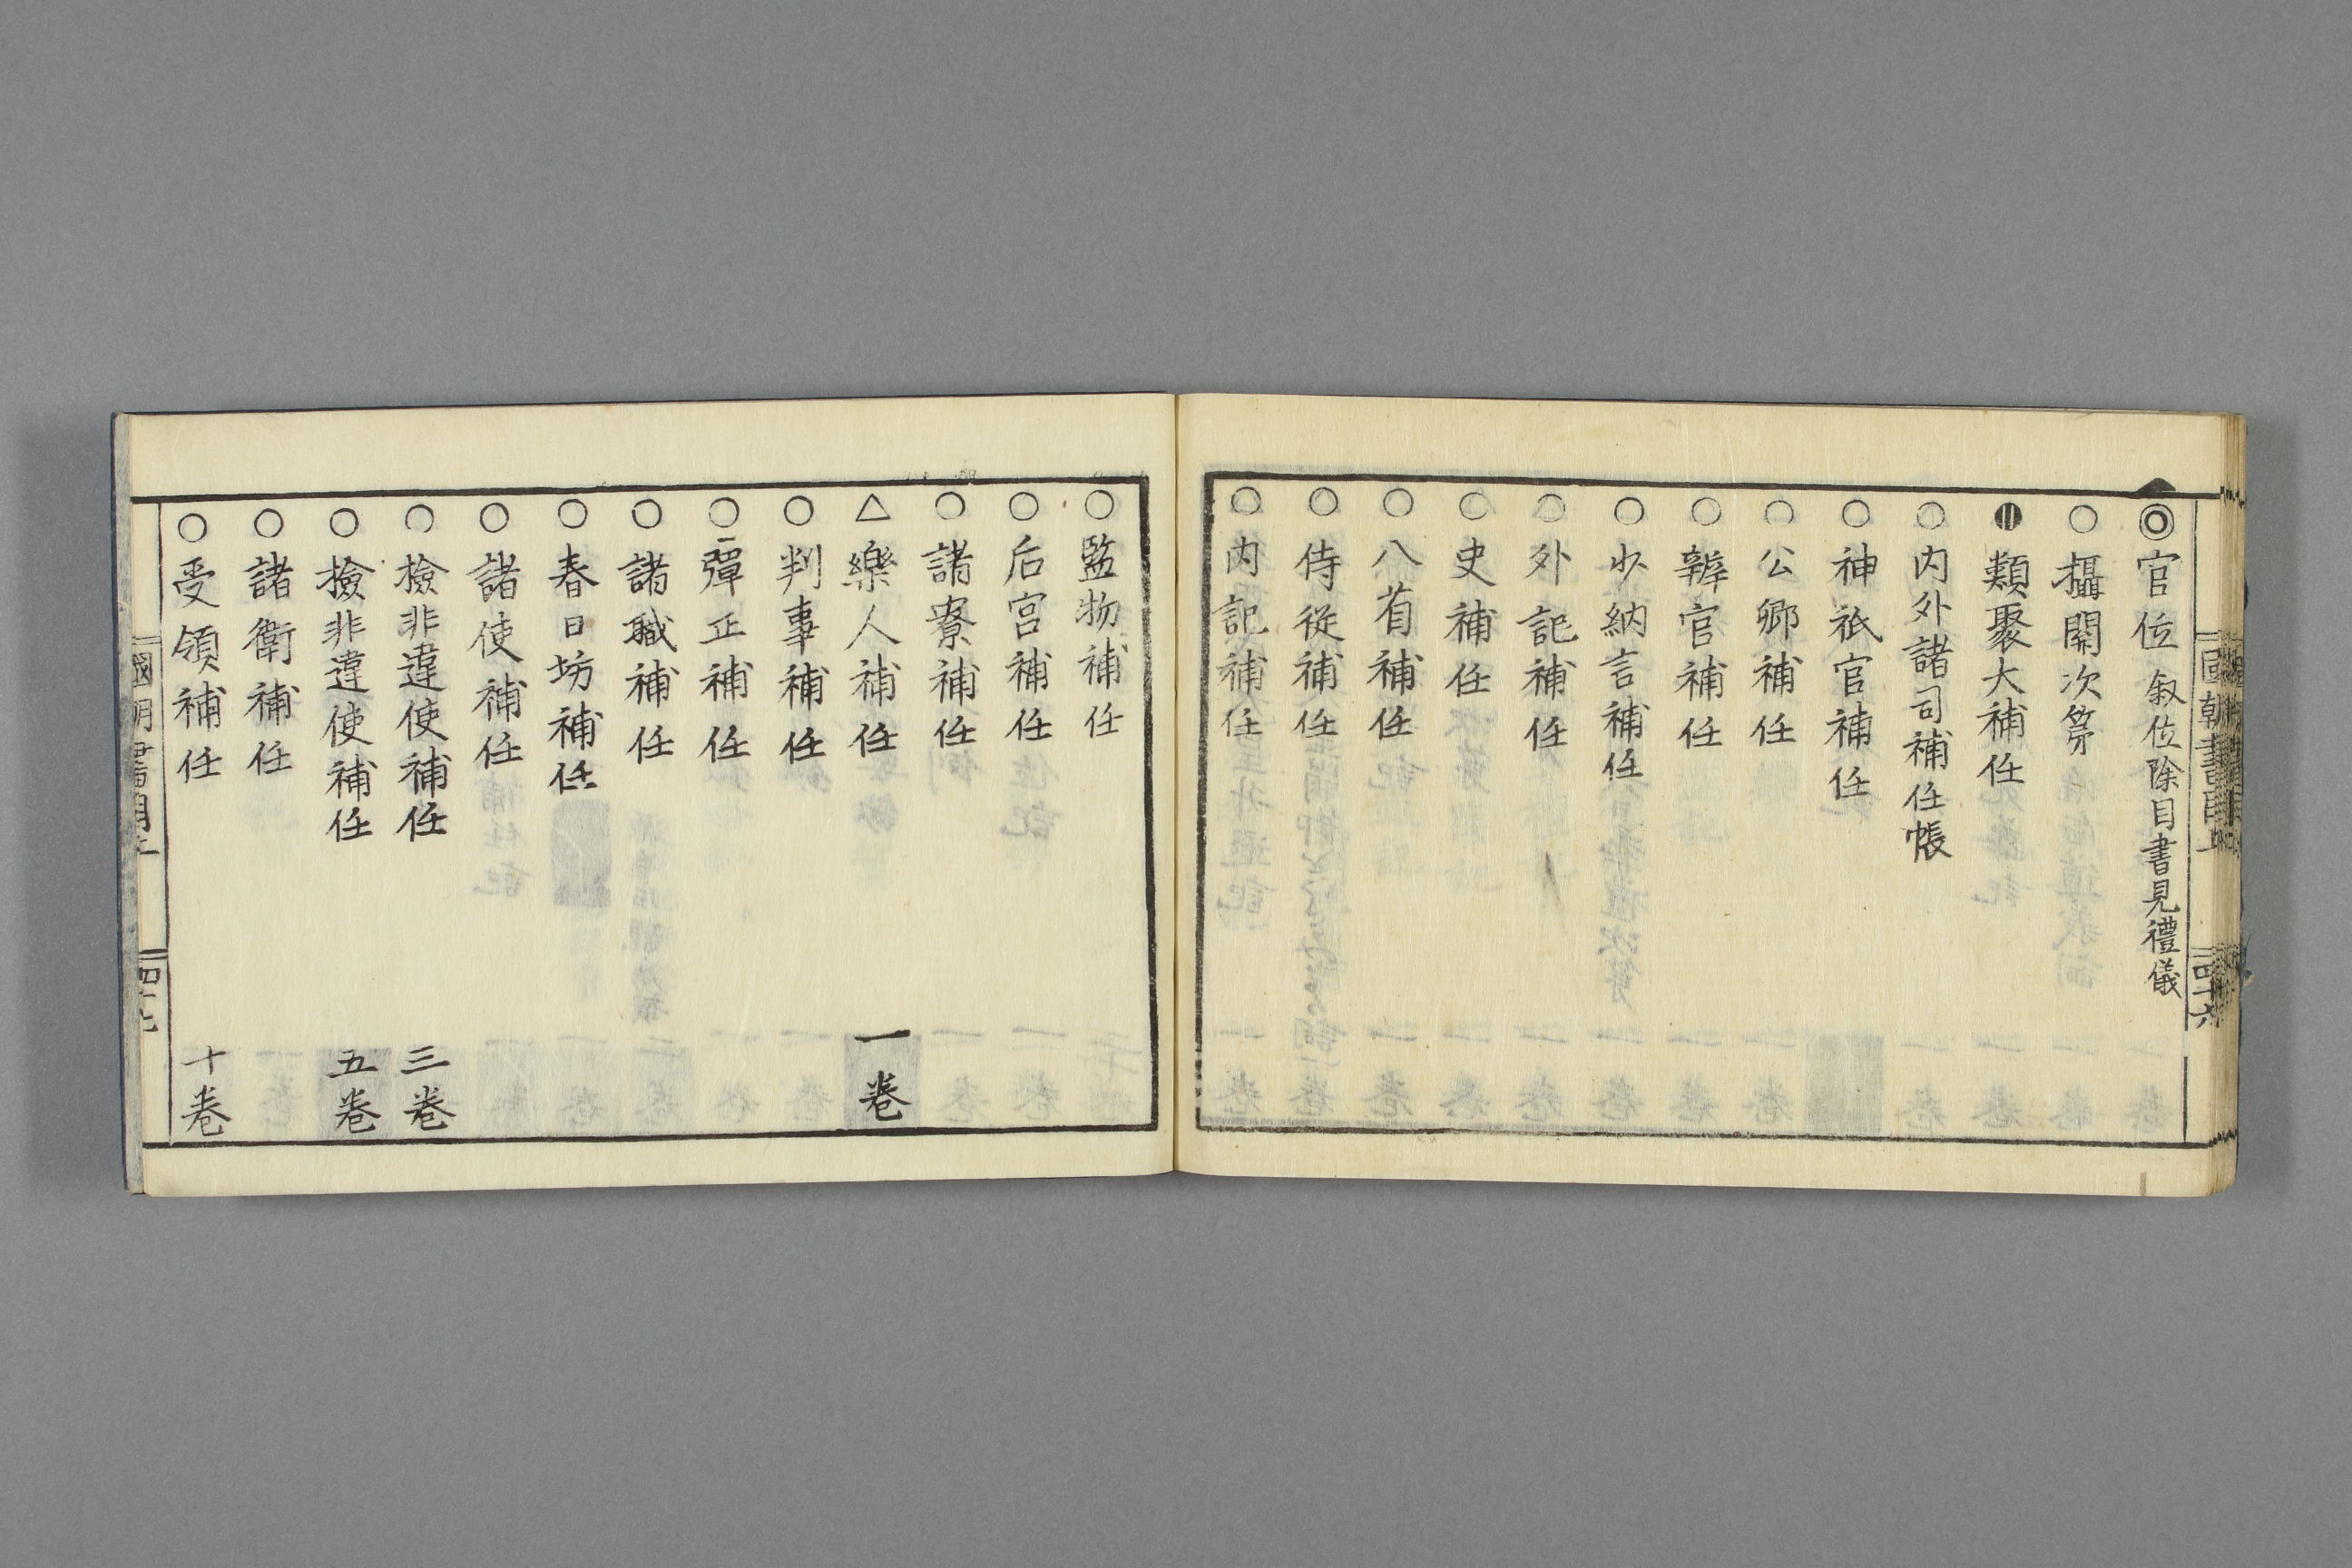 國朝書目上
四十六
◎官位 叙位除目書見禮儀
○攝関次第
類聚大補任
○内外諸司補任帳
○神祇官補任
○公卿補任
○辨官補任
○少納言補任
○外記補任
○史補任
○八省補任
○侍從補任
○内記補任
○監物補任
○后宮補任
○諸寮補任
△樂人補任 一卷
○判事補任
○彈正補任
○諸職補任
○春日坊補任
○諸使補任
○撿非違使補任 三卷
○撿非違使補任 五卷
○諸衛補任
○受領補任 十卷
國朝書目上
四十七